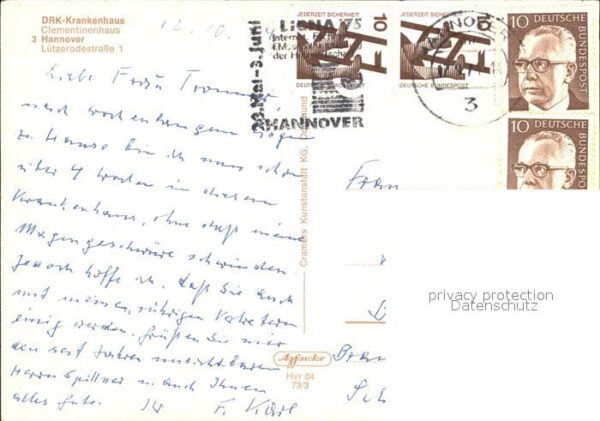 DRK-Krankenhaus
Clementinenhaus
3 Hannover
Lützerodestraße 1
12.10.
LIGNA 75
28. Mai - 3. Juni
HANNOVER
JEDERZEIT SICHERHEIT
10
DEUTSCHE BUNDESPOST
JEDERZEIT SICHERHEIT
10
DEUTSCHE BUNDESPOST
3
10 DEUTSCHE
BUNDESPOST
10 DEUTSCHE
BUNDESPOST
Liebe Frau
nach wochenlangem Liegen
zu Hause bin ich nun schon
über 4 Wochen in diesem
Krankenhaus, ohne daß meine
Magengeschwüre schwinden.
Jedoch hoffe ich, daß Sie auch
mit meinen rührigen Vertretern
einig werden. Grüßen Sie mir
den seit Jahren unsichtbaren
Herrn Spillner u. auch Ihnen
alles Gute. Ihr F. Karl
Cramers Kunstanstalt KG, Dortmund
Hvr 04
73/3
Frau
privacy protection
Datenschutz